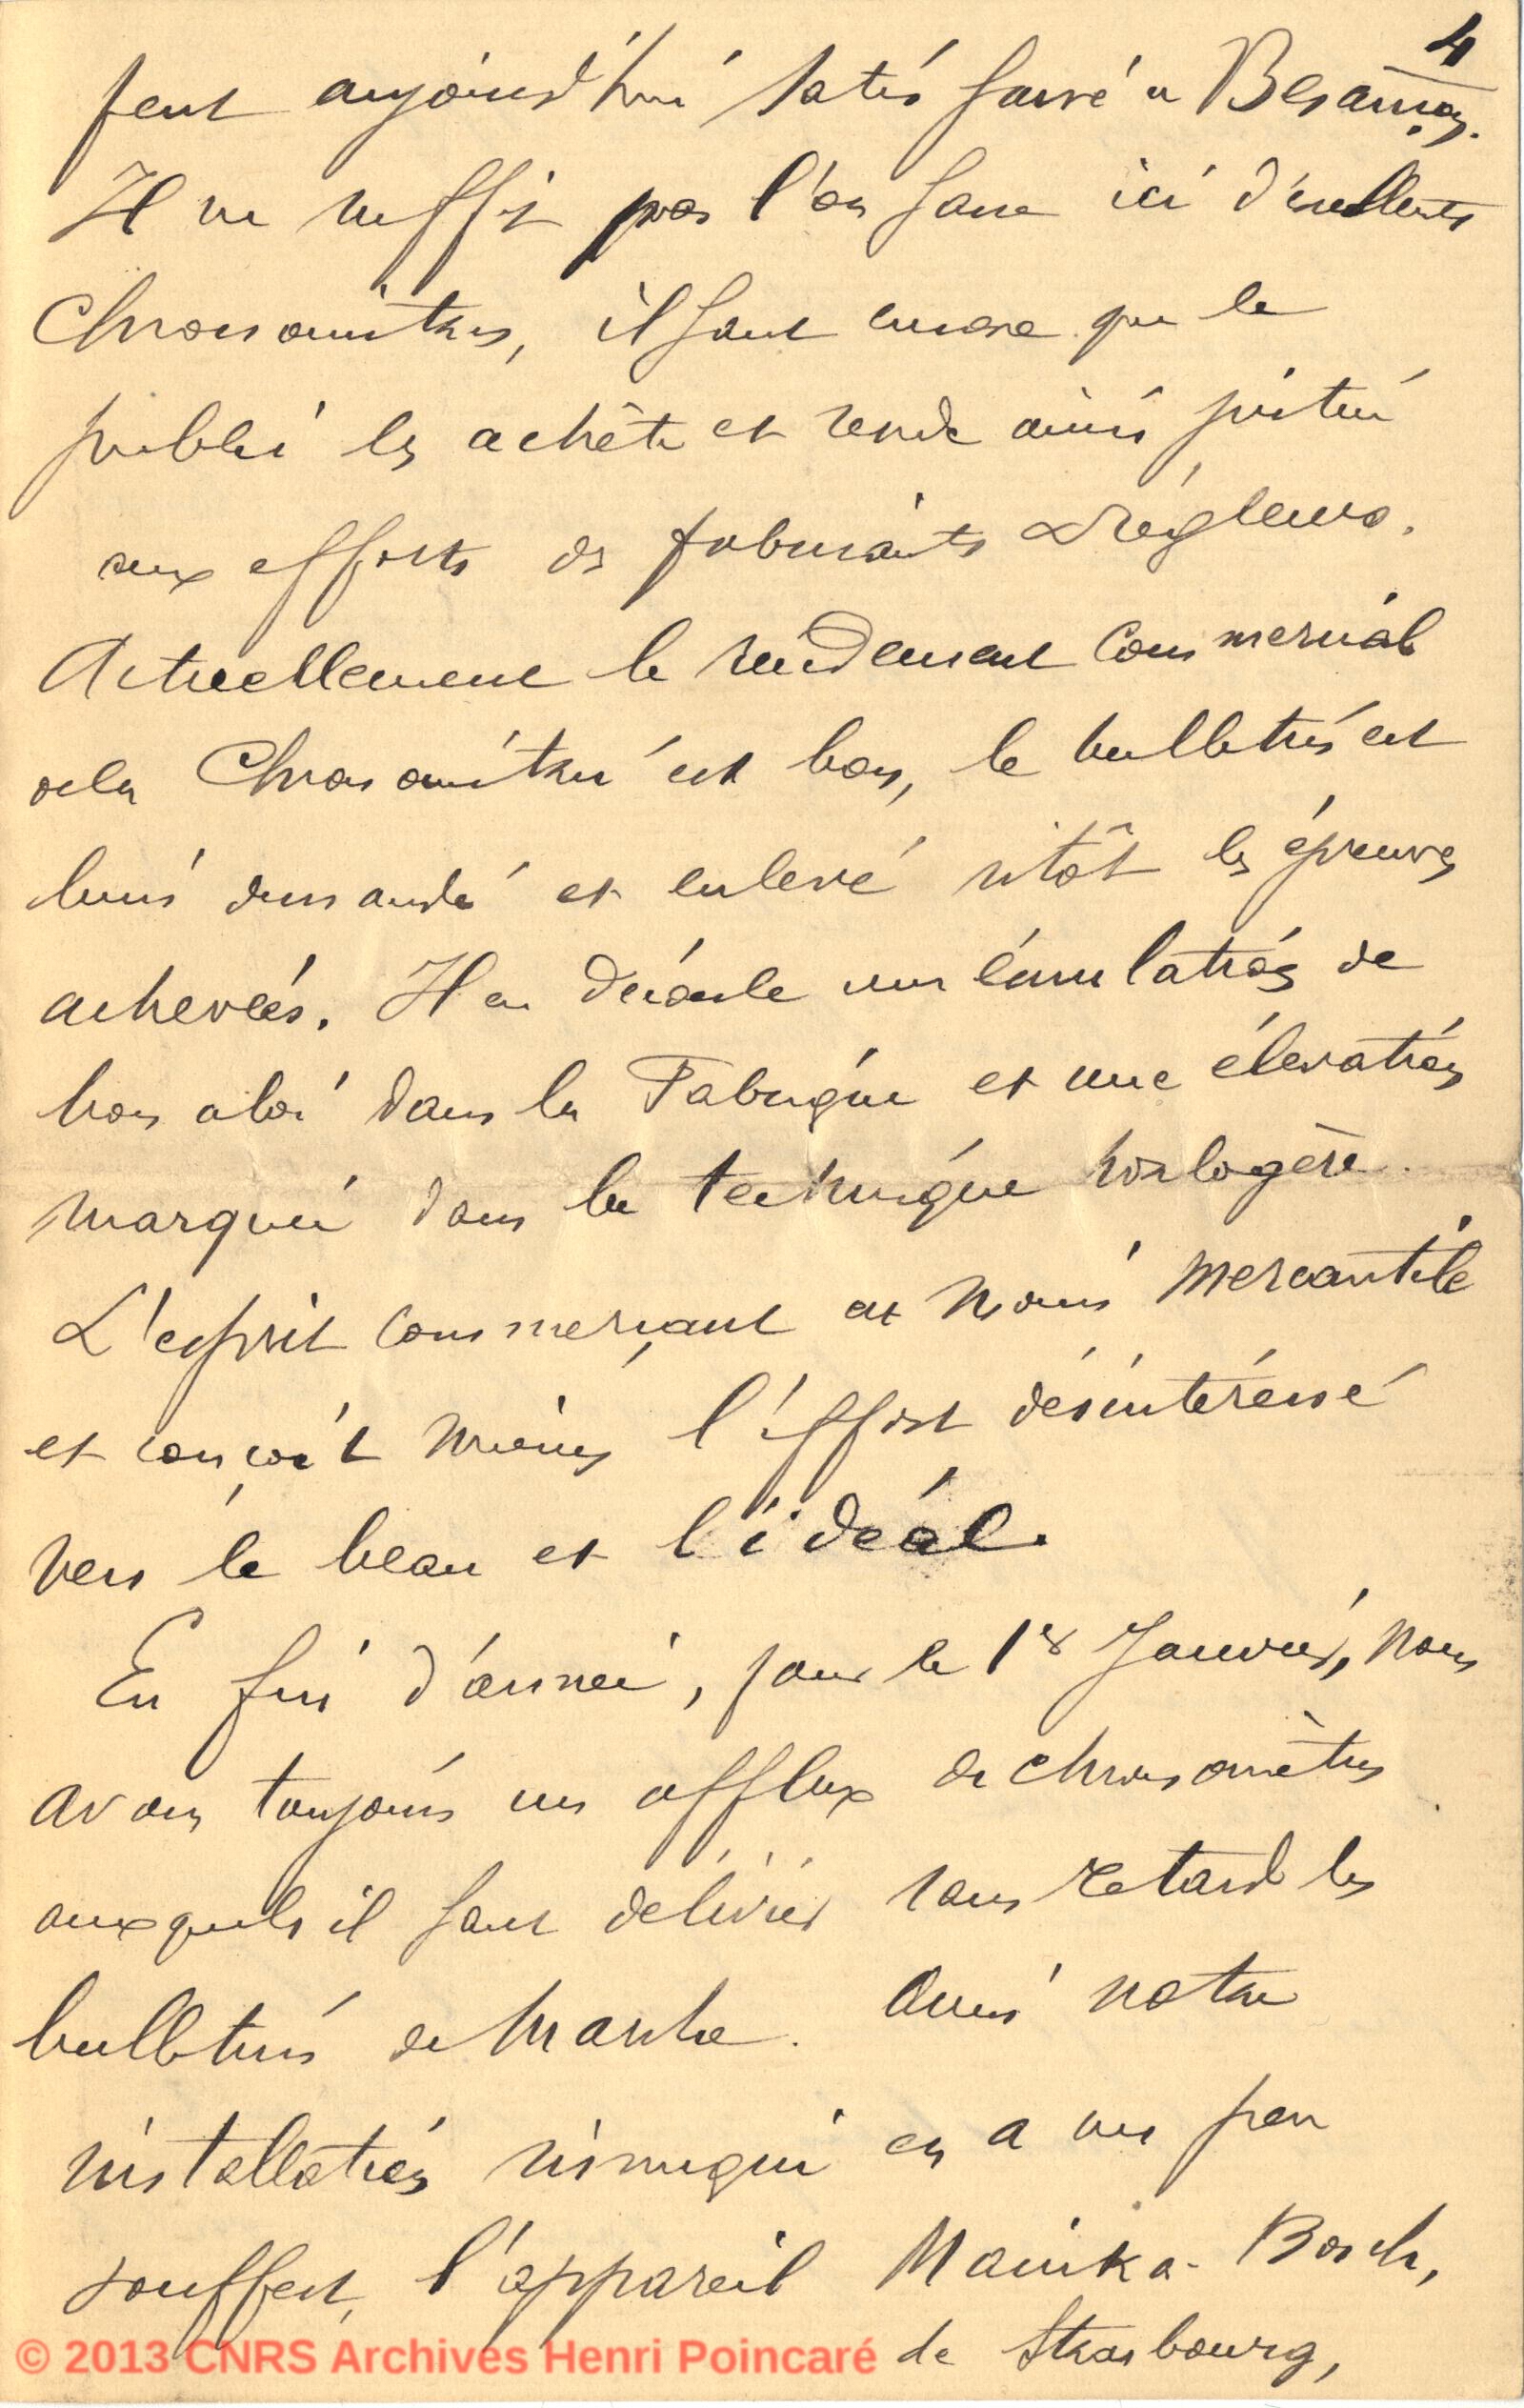 4
peut aujourd'hui satisfaire à Besançon.
Il ne suffit pas l'on fasse ici d'excellents
Chronomètres, il faut encore que le
public les achète et rende ainsi justice
aux efforts des fabricants & régleurs.
Actuellement le rendement commercial
de la Chronométrie est bon, le bulletin est
bien demandé et enlevé sitôt les épreuves
achevées. Il en découle une émulation de
bon aloi dans la Fabrique et une élévation
marquée dans la technique horlogère.
L'esprit commerçant est moins mercantile
et conçoit mieux l'effort désintéressé
vers le beau et l'idéal.
En fin d'année, pour le 1er Janvier, nous
avons toujours un afflux de chronomètres
auxquels il faut délivrer sans retard les
bulletins de marche. Aussi notre
installation sismique en a un peu
souffert, l'appareil Mainka-Bosch,
de Strasbourg,
© 2013 CNRS Archives Henri Poincaré